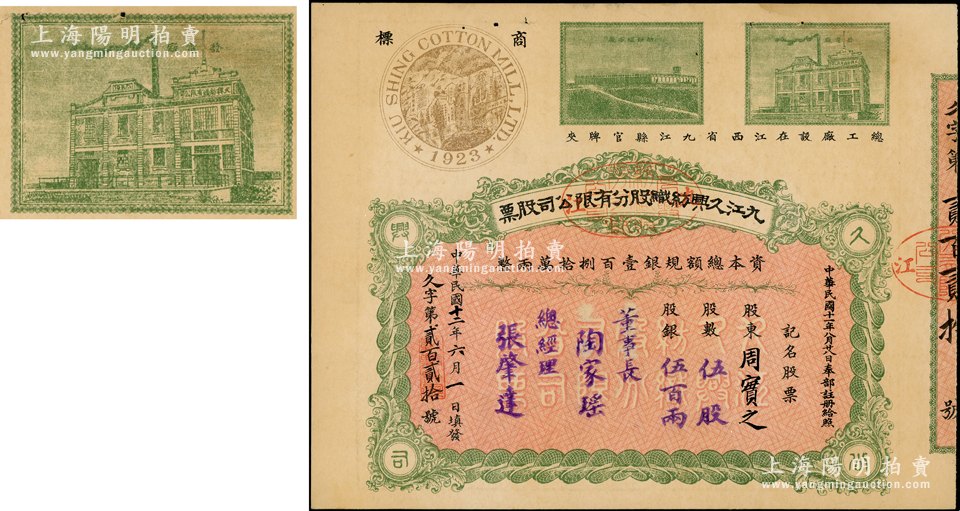 上海陽明拍賣
www.yangmingauction.com
商標
KIU SHING COTTON MILL, LTD
1923
總工廠設在江西省九江縣官牌夾
九江久興紡織股分有限公司股票
久
興
公
司
資本總額規銀壹百捌拾萬兩整
中華民國十一年八月廿八日奉部註册給照
記名股票
股東 周寶之
股數 伍股
股銀 伍百兩
董事長 陶家瑤
總經理 張肇達
中華民國十二年六月一日填發
久字第貳百貳拾號
久字第貳百貳拾號
上海陽明拍賣
www.yangmingauction.com
上海陽明拍賣
www.yangmingauction.com